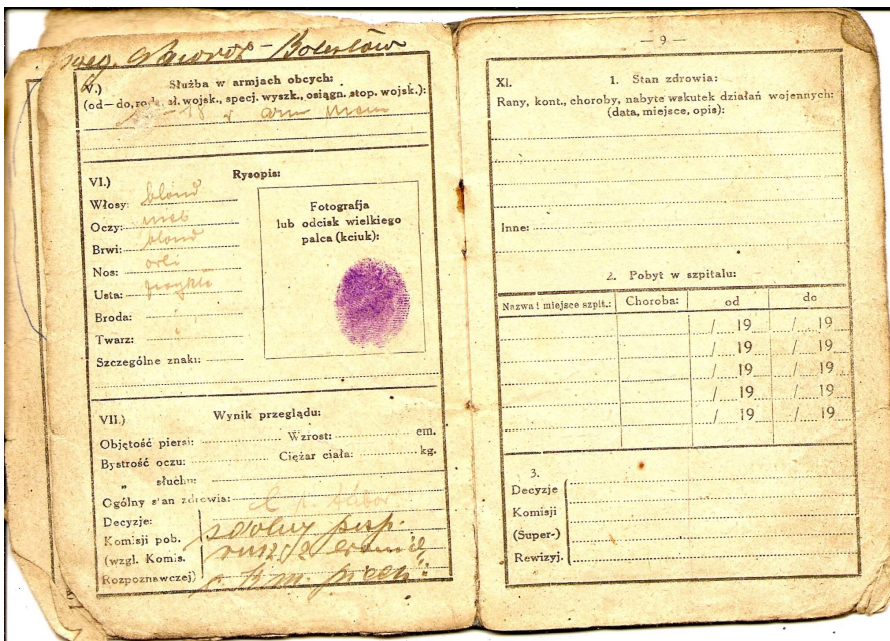 V.) Służba w armjach obcych:
(od—do, rodz. sł. wojsk., specj. wyszk., osiągn. stop. wojsk.):
VI.) Rysopis:
Włosy: blond
Oczy: nieb
Brwi: blond
Nos: orli
Usta:
Broda:
Twarz:
Szczególne znaki:
Fotografja
lub odcisk wielkiego
palca (kciuk):
VII.) Wynik przeglądu:
Objętość piersi: Wzrost: cm.
Bystrość oczu: Ciężar ciała: kg.
„ słuchu:
Ogólny stan zdrowia:
Decyzje:
Komisji pob. zdolny posp.
(wzgl. Komis.
Rozpoznawczej)
— 9 —
XI. 1. Stan zdrowia:
Rany, kont., choroby, nabyte wskutek działań wojennych:
(data, miejsce, opis):
Inne:
2. Pobyt w szpitalu:
Nazwa i miejsce szpit.: Choroba: od do
/ 19 / 19
/ 19 / 19
/ 19 / 19
/ 19 / 19
/ 19 / 19
3.
Decyzje
Komisji
(Super-)
Rewizyj.